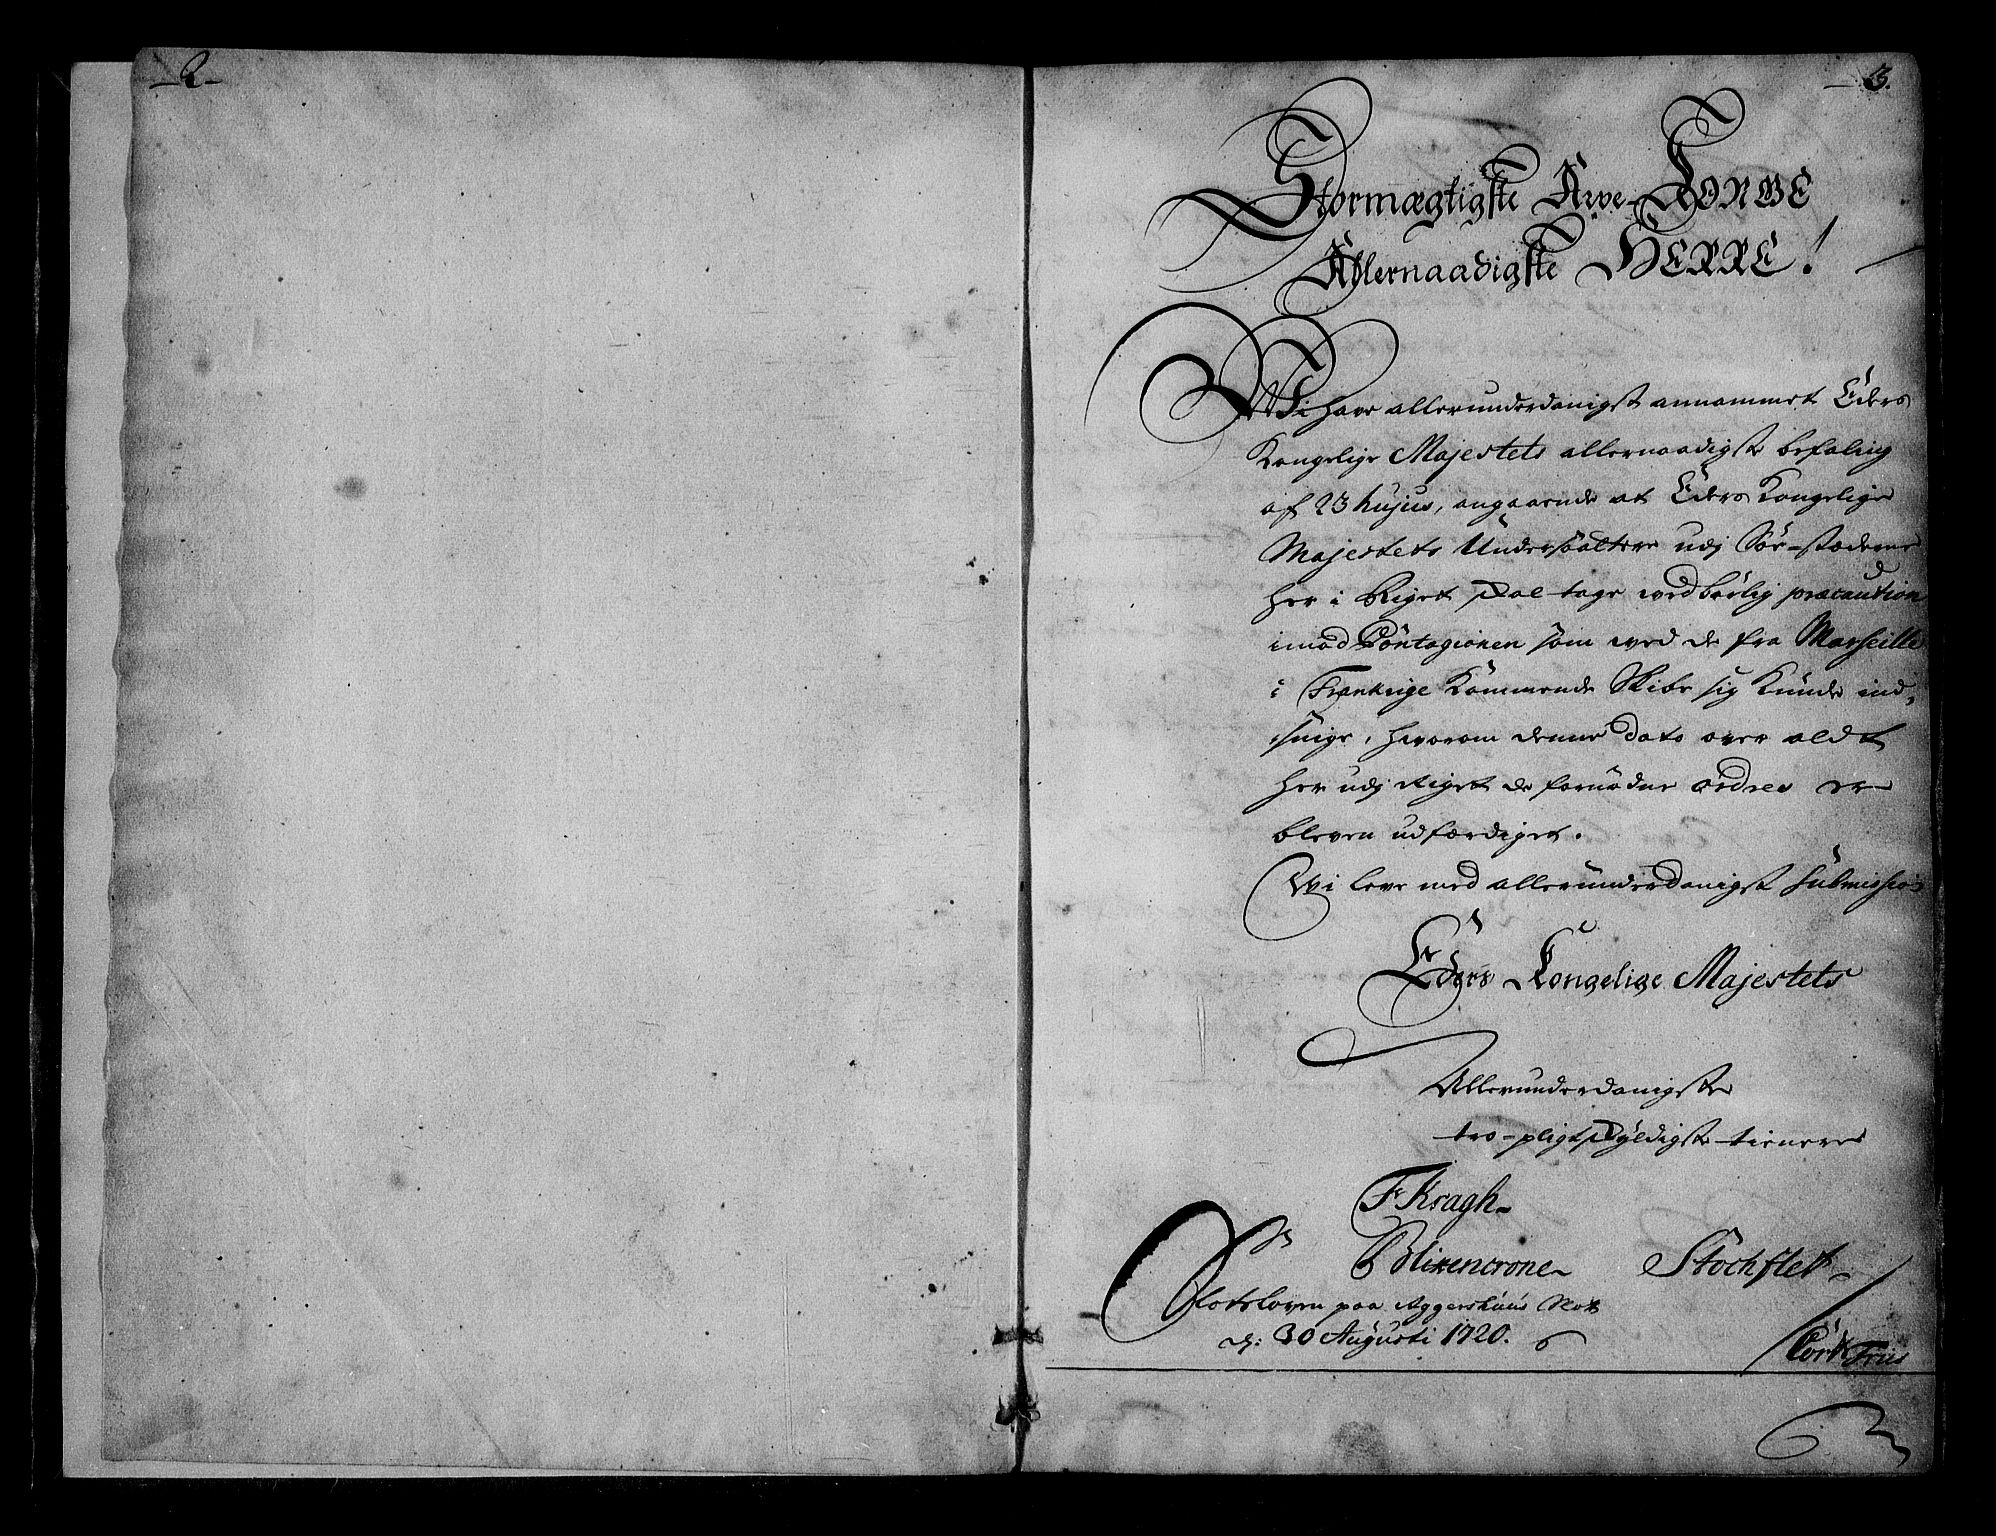 - 2 -
- 3.
Stormægtigste Arve-KONGE
Allernaadigste HERRE!
Wi have allerunderdanigst annammet Eders
Kongelige Majestets allernaadigste befaling
af 23 hujus, angaaende at Eders Kongelige
Majestets Undersaatter udj Søe-stæderne
her i Riget skal tage wedbørlig præcaution
imod Contagionen som wed de fra Marseille
i Frankrige kommende Skibe sig kunde ind-
snige, hvorom denne Dato over aldt
her udj Riget de fornødne ordres er
bleven udfærdiget.
Wi leve med allerunderdanigst submission
Eders Kongelige Majestets
Allerunderdanigste
tro-pligtskyldigste tienere
F Kragh
Blixencrone Stochflet
Slotsloven paa Aggershuus Slot
d: 30 Augusti 1720.
Cort Friis